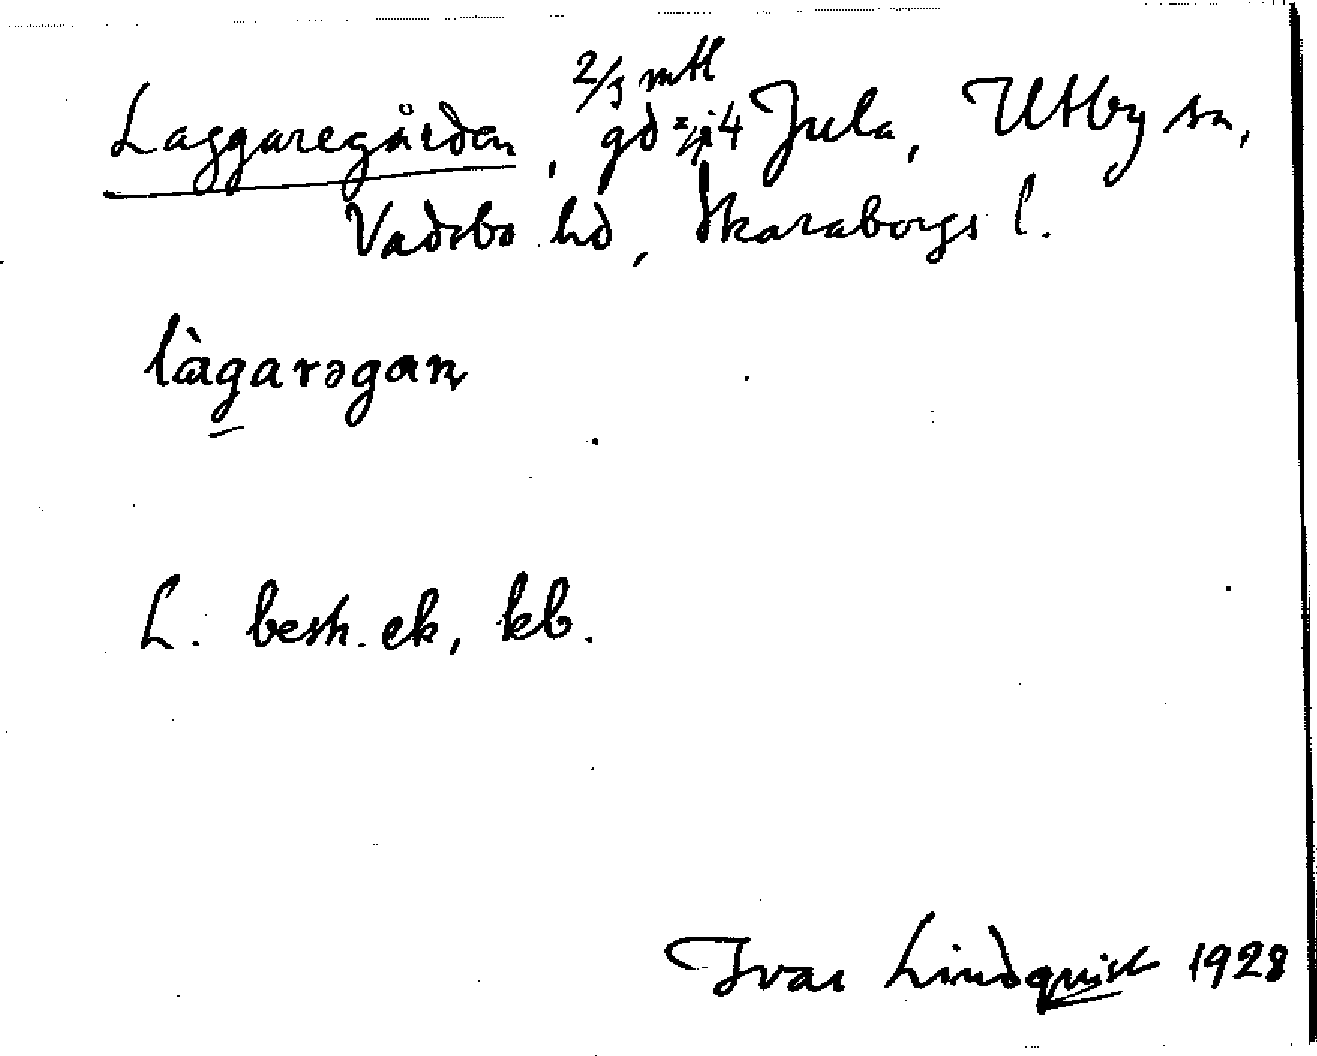 2/3 mtl
Laggaregården, gd i 4 Jula, Utby sn,
Vadsbo hd, Skaraborgs l.
làgarəgan
L. besk. ek, kb.
Ivar Lindquist 1928